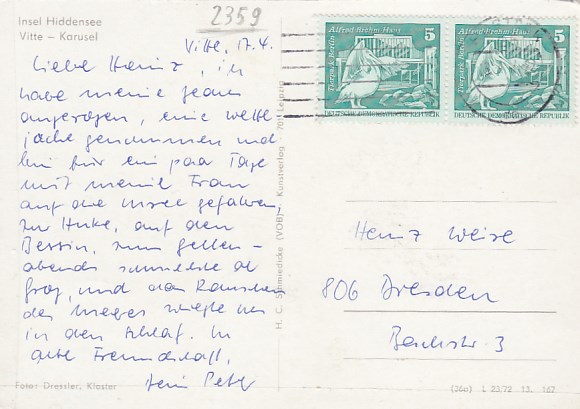 Insel Hiddensee
Vitte – Karusel
2359
Vitte, 17.4.
Liebe Heinz, ich
habe meine Jeans
angezogen, eine
jacke genommen und
bin für ein paar Tage
mit meiner Frau
auf die Insel gefahren,
zur Hucke, auf den
Bessin, zum Gellen –
abends
Gras, und das Rauschen
des Meeres wiegte uns
in den Schlaf. In
alter Freundschaft,
Dein Peter
Foto: Dressler, Kloster
H. C. Schmiedicke (VOB) Kunstverlag 701 Leipzig
Alfred-Brehm-Haus
5
Tierpark Berlin
DEUTSCHE DEMOKRATISCHE REPUBLIK
Alfred-Brehm-Haus
5
Tierpark Berlin
DEUTSCHE DEMOKRATISCHE REPUBLIK
Heinz Weise
806 Dresden
3
(36a) L 23/72 13. 167